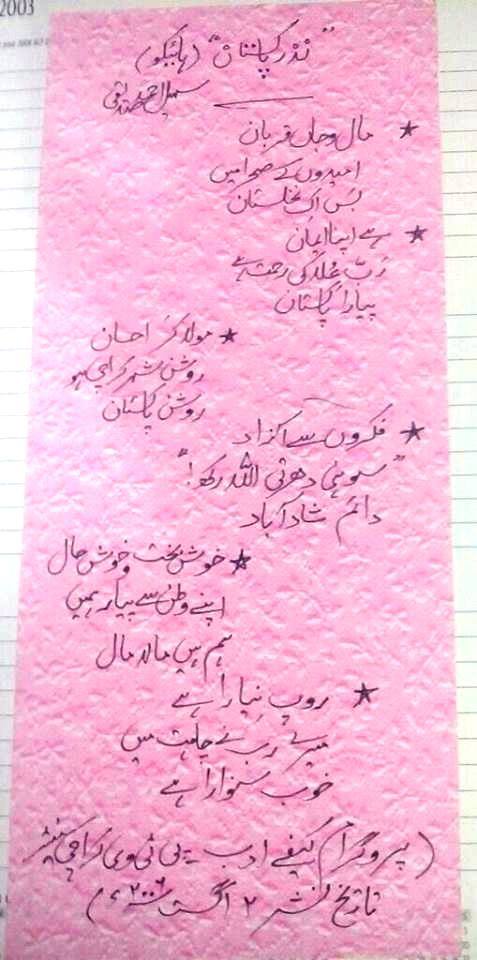 2003
"نذرِ پاکستان" (ہائیکو)
سہیل احمد صدیقی
★ مال وجاں قربان
امیدوں کے صحرا میں
بس اک نخلستان
★ ہے اپنا ایمان
ربِّ عُلا کی رحمت ہے
پیارا پاکستان
★ مولا کر احسان
روشن شہر کراچی ہو
روشن پاکستان
★ فکروں سے آزاد
"سوہنی دھرتی اللہ رکھے!"
دائم شاد آباد
★ خوش بخت و خوش حال
اپنے وطن سے پیار ہمیں
ہم ہیں مالا مال
★ روپ نیارا ہے
میرے رب نے چاہت میں
خوب سنوارا ہے
(پروگرام کیفے ادب - پی ٹی وی کراچی سینٹر
تاریخ نشر ۲ اگست ۲۰۰۶ء)